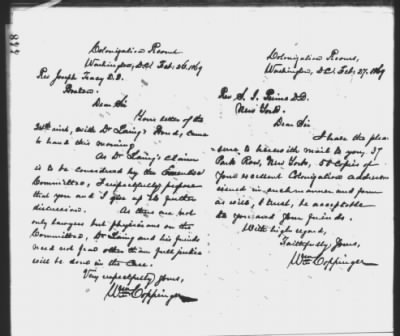 Colonization Rooms,
Washington, D.C. Feb: 26. 1869
Rev Joseph Tracy D.D.
Boston.
Dear Sir
Your letter of the
24th inst, with Dr Laing's Bond, came
to hand this morning.
As Dr Laing's claim
is to be considered by the Executive
Committee, I respectfully propose
that you and I give up its further
discussion. As there are not
only lawyers but physicians on the
Committee, Dr Laing and his friends
need not fear other than full justice
will be done in the case.
Very respectfully Yours,
Wm Coppinger
Colonization Rooms,
Washington, D.C. Feb: 27. 1869
Rev. S. I. Prime D.D.
New York.
Dear Sir
I have the plea
sure to herewith mail to you, 37
Park Row, New York, 50 copies of
your excellent Colonization address
issued in such manner and form
as will, I trust, be acceptable
to you and your friends.
With high regard,
Faithfully, Yours,
Wm Coppinger